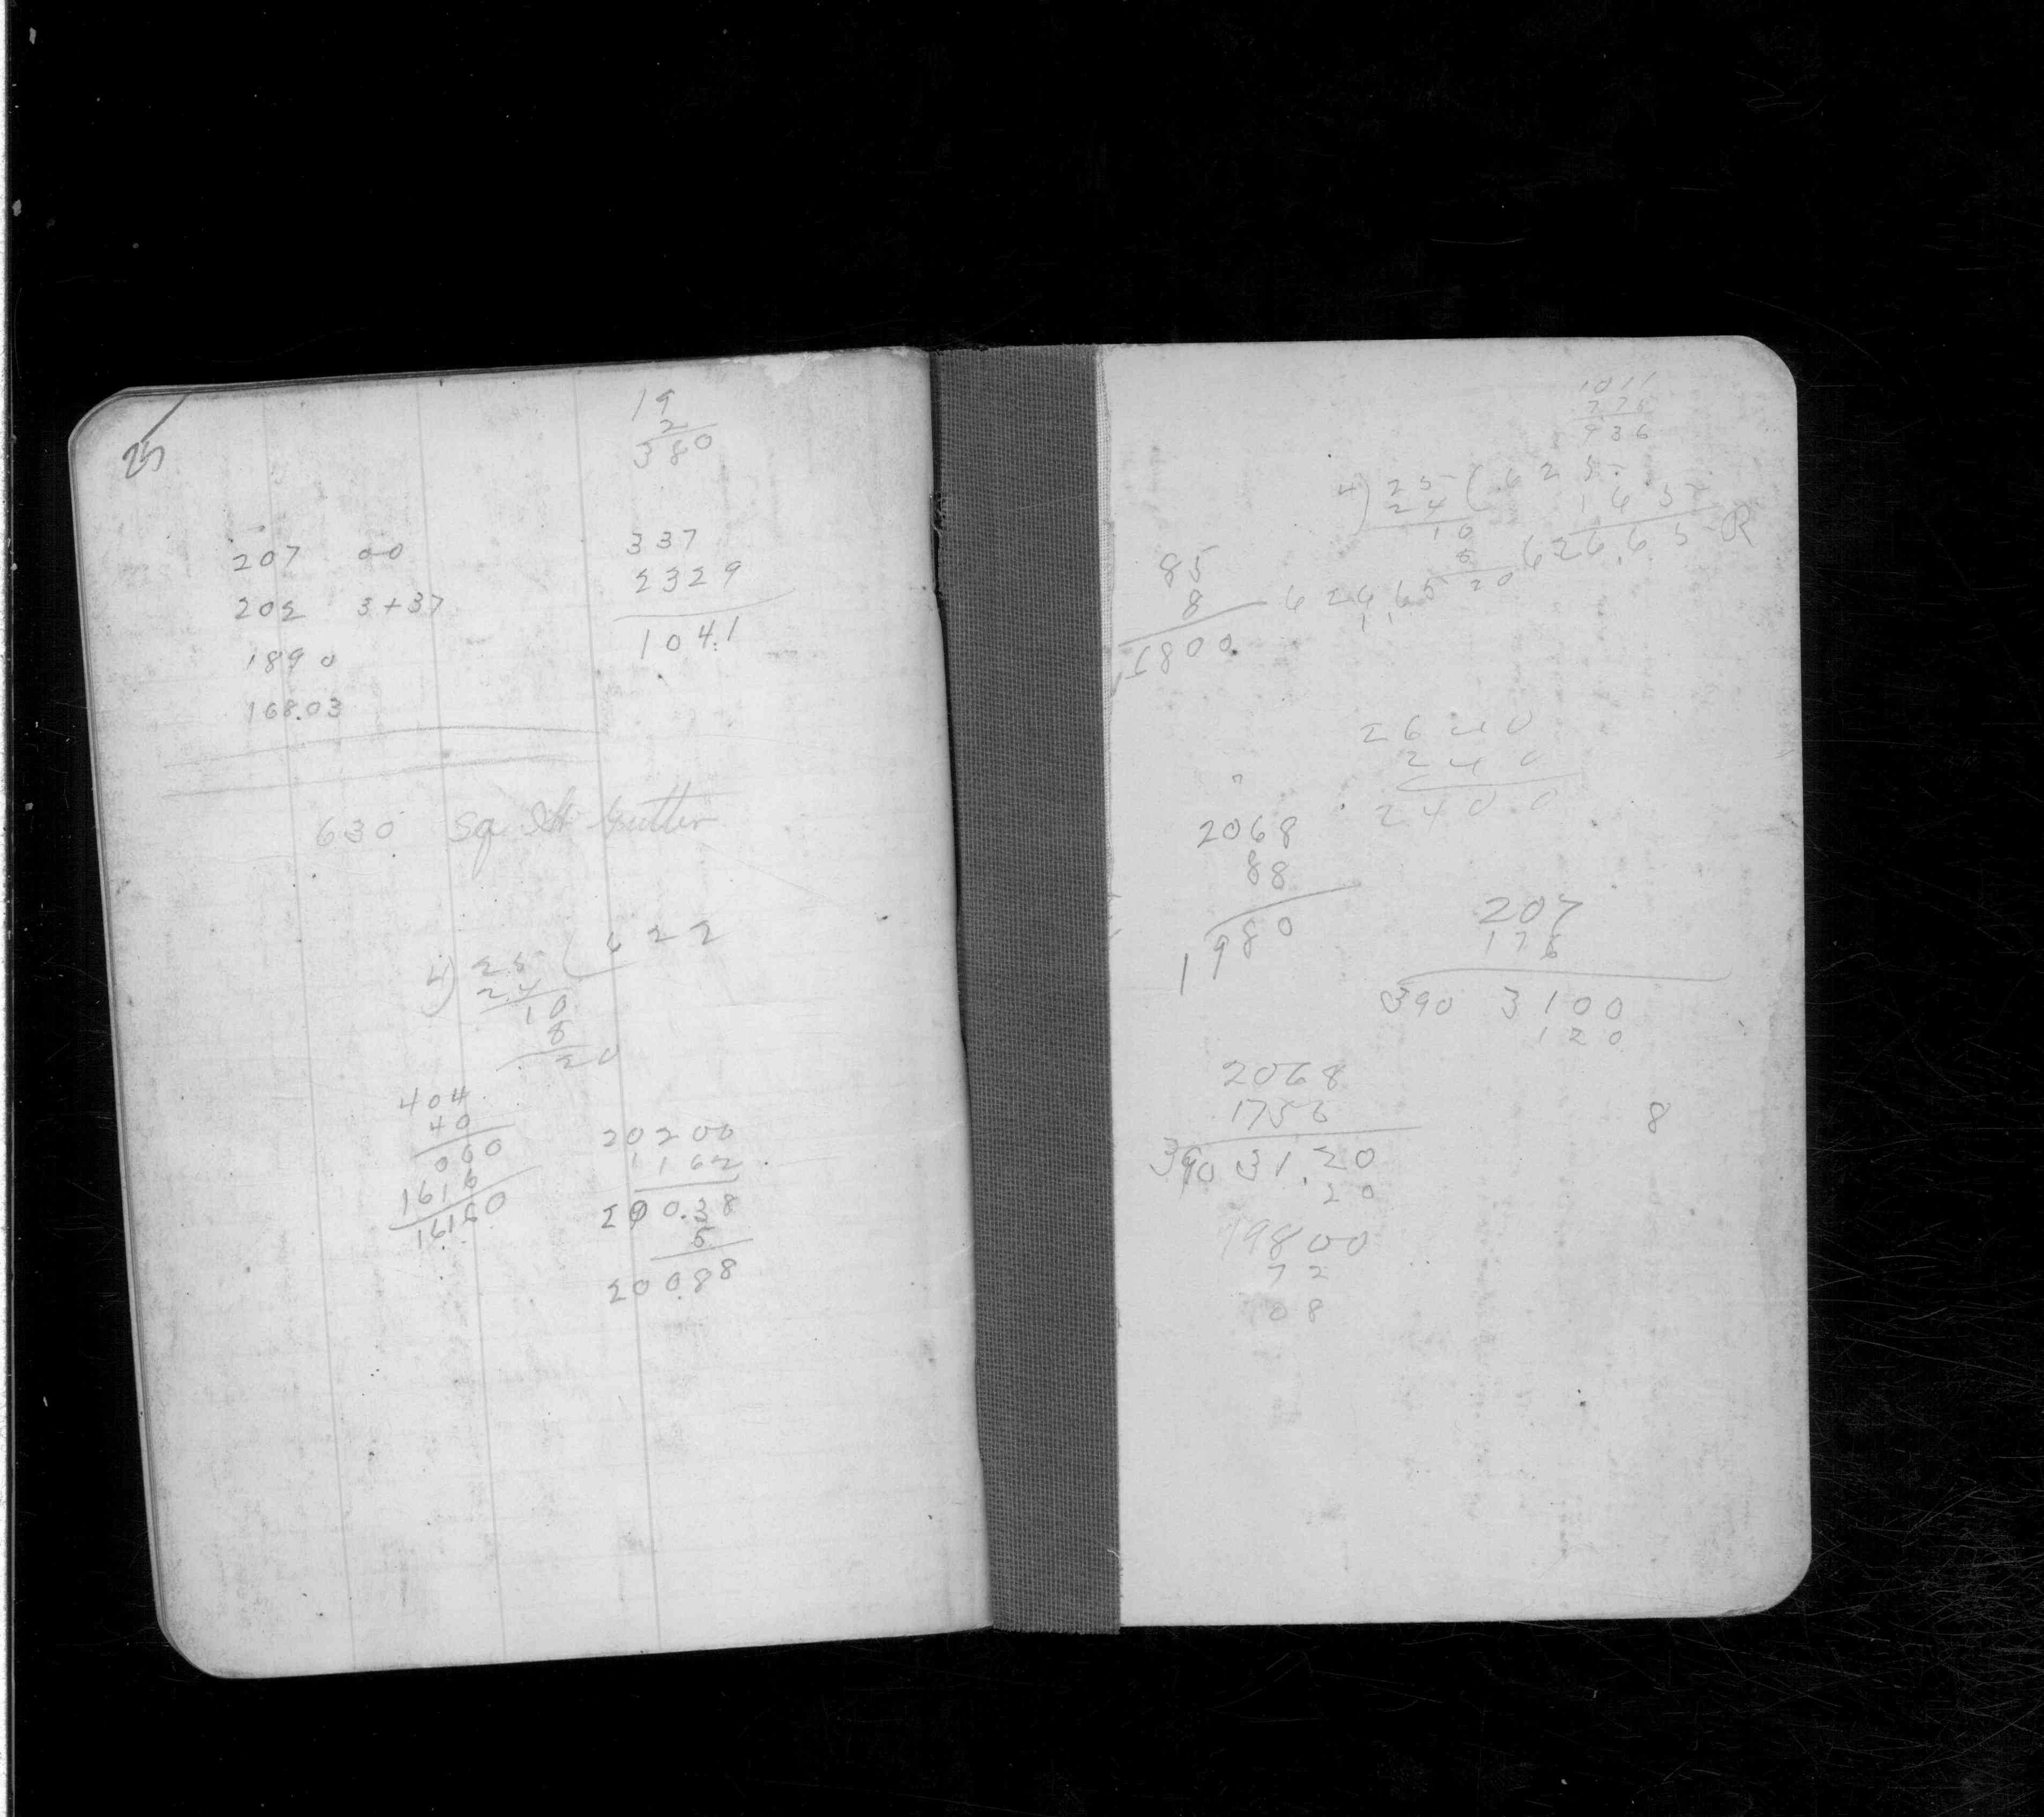 25
19
2
380
207 00
202 3+37
1890
168.03
337
2329
1041
630 Sq Ft Gutter
4) 25 ( 622
24
10
8
20
404
40
060
1616
16160
20200
1162
200.38
5
200.88
1011
936
4) 25 ( 625
24 165
10 626.65 R
8
20
62665
11
85
8
1800
2640
240
2400
2068
88
1980
207
176
390 3100
120
2068
1756
390 31.20
20
8
19800
72
08